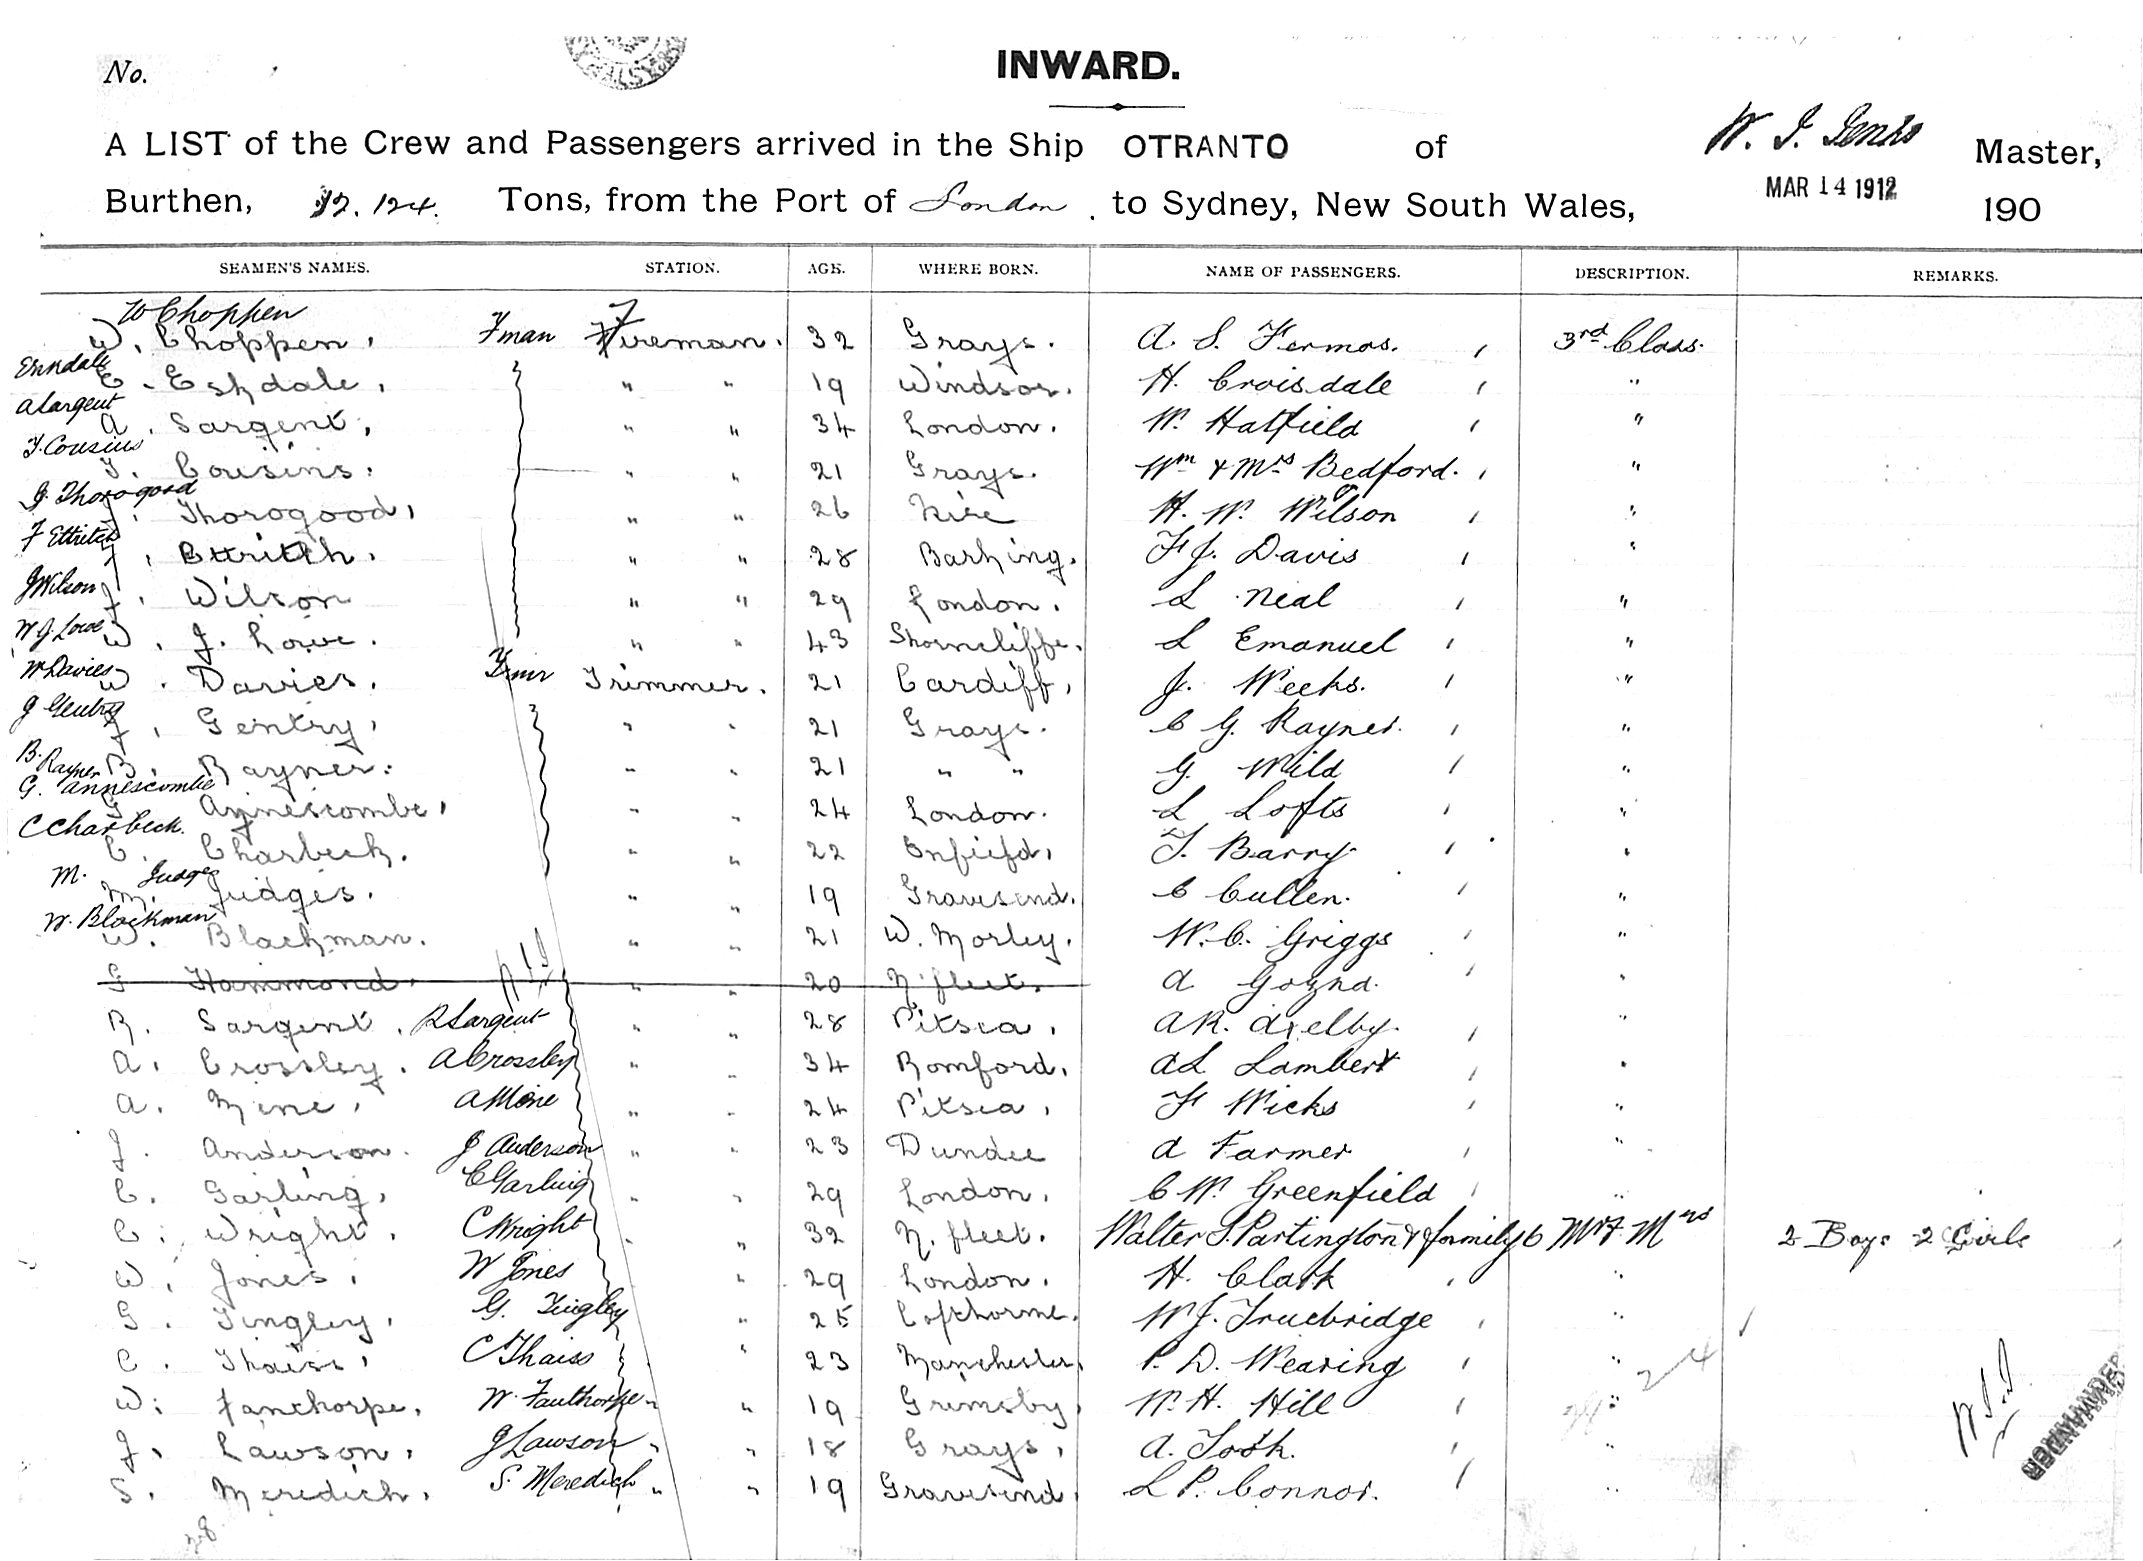 No.
INWARD.
A LIST of the Crew and Passengers arrived in the Ship OTRANTO of W. J. Jenks Master,
Burthen, 12.124. Tons, from the Port of London. to Sydney, New South Wales, MAR 14 1912 190
SEAMEN'S NAMES. STATION. AGE. WHERE BORN. NAME OF PASSENGERS. DESCRIPTION. REMARKS.
W Choppen
W. Choppen, Fman Fireman. 32 Grays. A. S. Fermos. 3rd Class.
E. Eskdale, " " 19 Windsor. H. Croisdale "
A Sargent
A. Sargent, " " 34 London. W. Hatfield "
T. Cousins
T. Cousins. " " 21 Grays. Wm & Mrs Bedford. "
J. Thorogood
J. Thorogood, " " 26 H. W. Wilson "
F Ettritch
F. Ettritch. " " 28 Barking. F J. Davis "
J Wilson
J. Wilson " " 29 London. L Neal "
W J Lowe
W. J. Lowe. " " 43 Shorncliffe. L Emanuel "
W Davies
W. Davies. Trimmer. 21 Cardiff, J. Weeks. "
J Gentry
J. Gentry, " " 21 Grays. C G. Rayner. "
B. Rayner
B. Rayner. " " 21 " " G. Wild "
G. Annescombe
G. Annescombe, " " 24 London. L Lofts "
C Charbeck.
C. Charbeck. " " 22 Enfield, T. Barry "
M. Judges
M. Judges. " " 19 Gravesend. C Cullen. "
W. Blackman
W. Blackman. " " 21 W. Morley. W. C. Griggs "
G Hammond. " " 20 N. fleet. A "
R. Sargent. R Sargent " " 28 Pitsea, A R. Axelby. "
A. Crossley. A Crossley " " 34 Romford, A L Lambert "
A. " " 24 Pitsea, F Wicks "
J. Anderson. J Anderson " " 23 Dundee A Farmer "
C. Garling, C Garling " " 29 London. C W. Greenfield "
C. Wright. C Wright " " 32 N. fleet. Walter S. Partington & family 6 Mr & Mrs 2 Boys 2 Girls
W. Jones, W Jones " 29 London. H. Clark "
G. Tingley, G. Tingley " 25 Copthorne. W J. Truebridge "
C. Thaiss, C Thaiss " " 23 Manchester, P. D. Wearing " 24
W. Fanthorpe, W. Fanthorpe " " 19 Grimsby, W. H. Hill "
J. Lawson, J Lawson " " 18 Grays, A. Tosh. "
S. Meredith, S. Meredith " " 19 Gravesend. L P. Connor. "
28